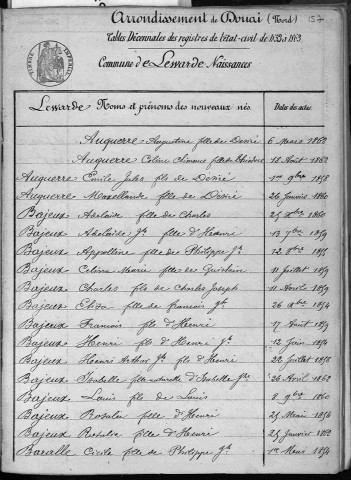 Arrondissement de Douai (Nord) 157
Tables Décennales des registres de l'état-civil de 1853 à 1863
Commune de Lewarde Naissances
Lewarde Noms et prénoms des nouveaux nés Dates des actes
Auguerre Augustine fille de Désiré 6 Mars 1862
Auguerre Céline fille de 18 Août 1862
Auguerre Emile Jules fils de Désiré 1er 9bre 1858
Auguerre fille de Désiré 26 Janvier 1860
Bajeux Adélaïde fille de Charles 25 Xbre 1860
Bajeux Adélaïde Jh fille d'Henri 13 7bre 1859
Bajeux Appolline fille de Philippe Jh 12
Bajeux Marie fille de Ghislain 11 Juillet 1859
Bajeux Charles fils de Charles Joseph 11 Avril 1859
Bajeux Eliza fille de françois Jh 26 Xbre 1854
Bajeux Francois fils d'Henri 17 Août 1859
Bajeux Henri fils d'Henri Jh 12 Juin 1854
Bajeux Henri Arthur Jh fils d'Henri 28 Juillet 1858
Bajeux Isabelle fille naturelle d'Isabelle 26 Avril 1862
Bajeux Louis fils de Louis 8 9bre 1860
Bajeux Rosalie fille d'Henri 25 Mai 1856
Bajeux Rosalie fille d'Henri 25 Janvier 1862
Baralle Cécile fille de Philippe Jh 1er Mars 1854